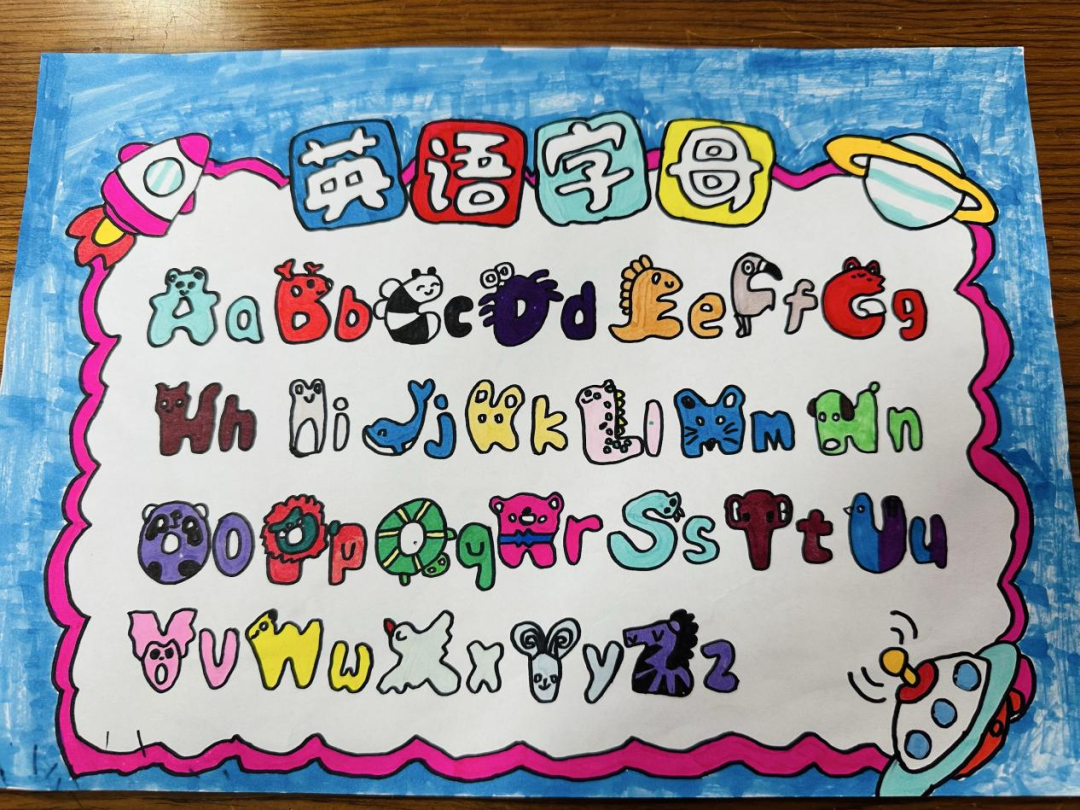 英语字母
Aa Bb Cc Dd Ee Ff Gg
Hh Ii Jj Kk Ll Mm Nn
Oo Pp Qq Rr Ss Tt Uu
Vv Ww Xx Yy Zz